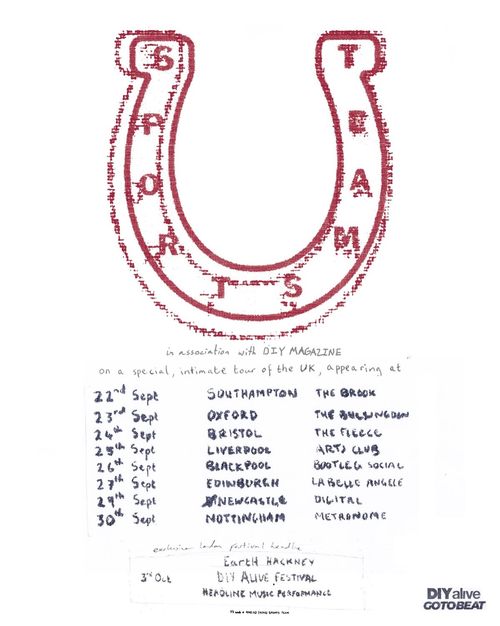 SPORTS TEAM
in association with DIY MAGAZINE
on a special, intimate tour of the UK, appearing at
22nd Sept SOUTHAMPTON THE BROOK
23rd Sept OXFORD THE BULLINGDON
24th Sept BRISTOL THE FLEECE
25th Sept LIVERPOOL ARTS CLUB
26th Sept BLACKPOOL BOOTLEG SOCIAL
27th Sept EDINBURGH LA BELLE ANGELE
29th Sept NEWCASTLE DIGITAL
30th Sept NOTTINGHAM METRONOME
exclusive London festival headline
EartH HACKNEY
3rd Oct DIY ALIVE FESTIVAL
HEADLINE MUSIC PERFORMANCE
DIYalive
GOTOBEAT